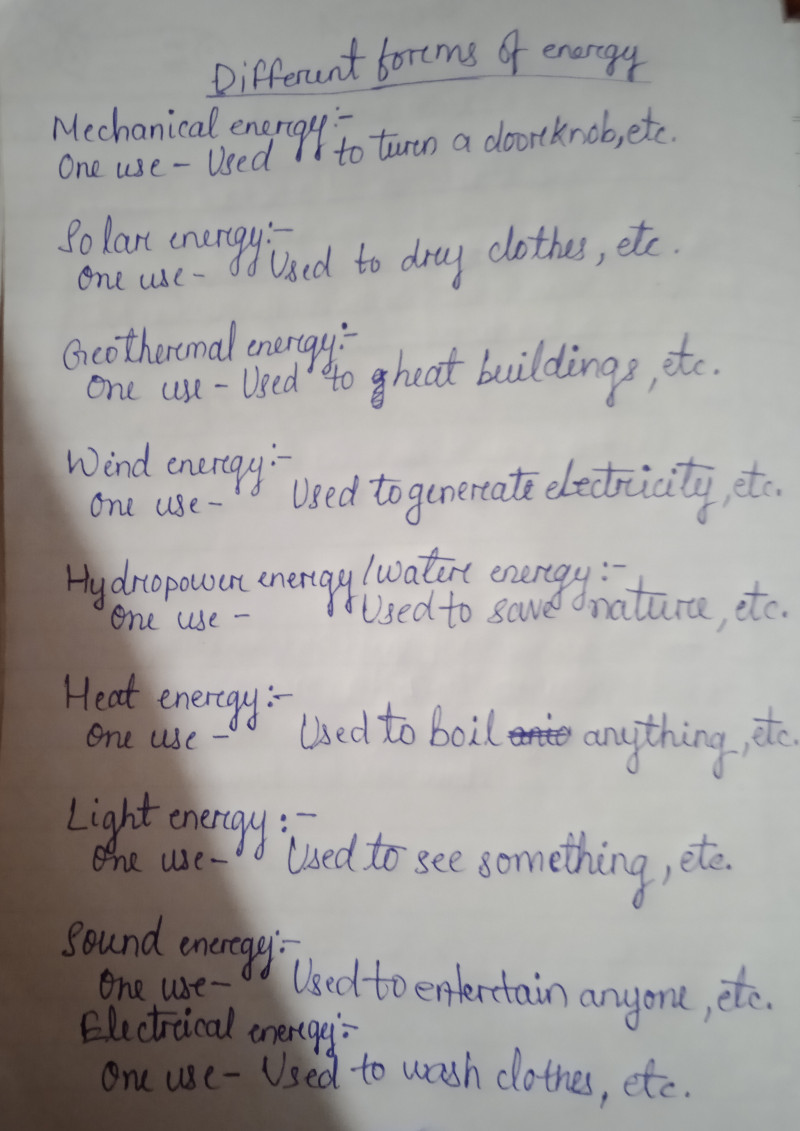 Different forms of energy
Mechanical energy:-
One use - Used to turn a doorknob, etc.
Solar energy:-
One use - Used to dry clothes, etc.
Geothermal energy:-
One use - Used to heat buildings, etc.
Wind energy:-
One use - Used to generate electricity, etc.
Hydropower energy/water energy:-
One use - Used to save nature, etc.
Heat energy:-
One use - Used to boil anything, etc.
Light energy:-
One use - Used to see something, etc.
Sound energy:-
One use - Used to entertain anyone, etc.
Electrical energy:-
One use - Used to wash clothes, etc.